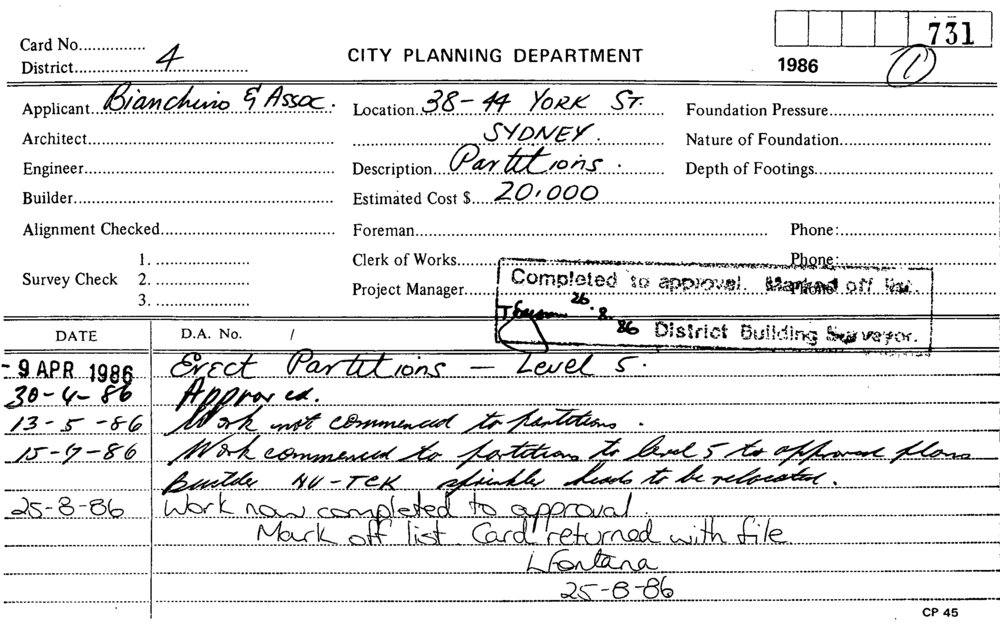 731
Card No.
District 4
CITY PLANNING DEPARTMENT
1986 1
Applicant Bianchino & Assoc. Location 38-44 YORK ST. Foundation Pressure
Architect SYDNEY. Nature of Foundation
Engineer Description Partitions. Depth of Footings
Builder Estimated Cost $ 20,000
Alignment Checked Foreman Phone:
Survey Check 1. 2. 3.
Clerk of Works Phone:
Project Manager
Completed to approval. Marked off list.
26.8.86 District Building Surveyor.
DATE D.A. No. /
- 9 APR 1986 Erect Partitions — Level 5.
30-4-86 Approved.
13-5-86 Work not commenced to partitions.
15-7-86 Work commenced to partitions to level 5 to approved plans
Builder sprinkler heads to be relocated.
25-8-86 Work now completed to approval.
Mark off list. Card returned with file
L Fontana
25-8-86
CP 45